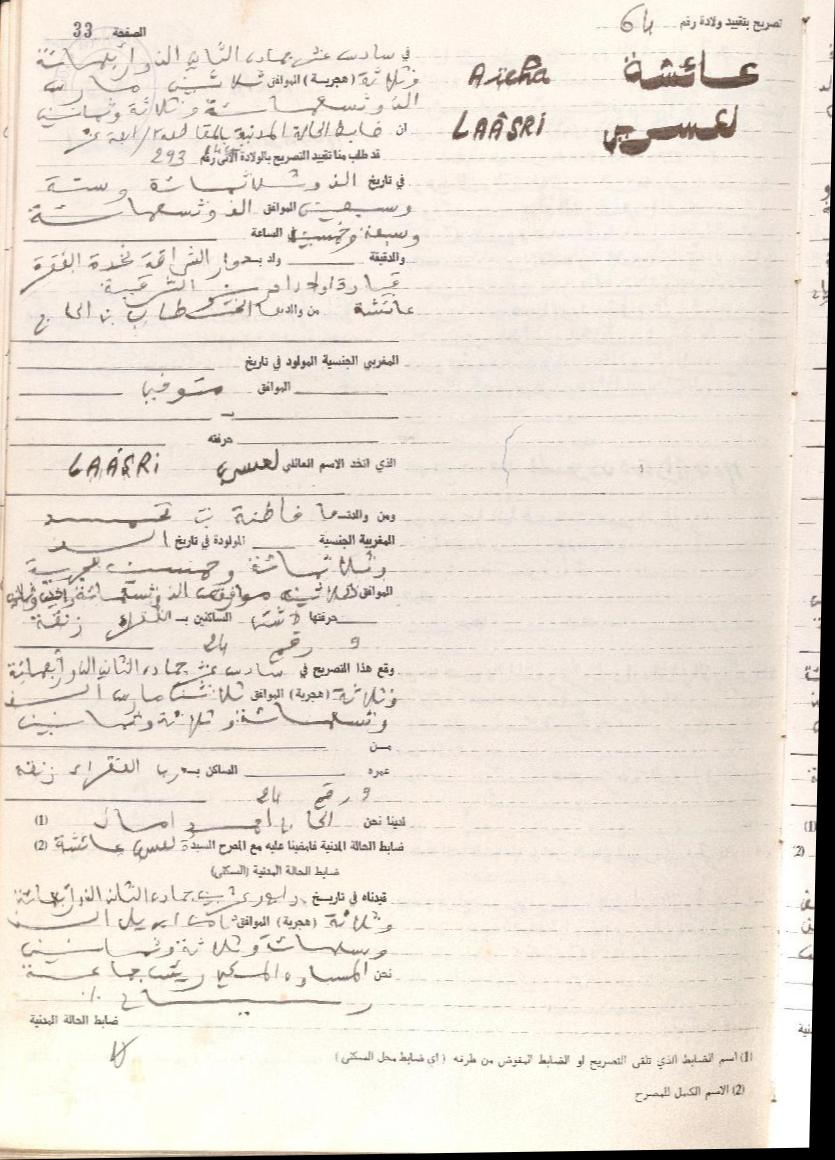 تصريح بتقييد ولادة رقم 64
الصفحة 33
عائشة Aicha
لعسري LAÂSRI
في سادس عشر جمادى الثاني الف واربعمائة
وثلاثة (هجرية) الموافق ثلاثين مارس
الف وتسعمائة وثلاثة وثمانين
ان ضابط الحالة المدنية
قد طلب منا تقييد التصريح بالولادة الآتي رقم 293
في تاريخ الف وثلاثمائة وستة
وسبعين الموافق الف وتسعمائة
وسبعة وخمسين في الساعة
والدقيقة ولد بـ دوار الشراقة فخدة الفقرة
قيادة اولاد امرين الشرقية
عائشة من والدها الخطاب بن الحاج
المغربي الجنسية المولود في تاريخ
الموافق متوفيا
حرفته
الذي اتخد الاسم العائلي لعسري LAÂSRI
ومن والدتها فاطنة بنت محمد
المغربية الجنسية المولودة في تاريخ الف
وثلاثمائة وخمسين هجرية
الموافق موافق الف وتسعمائة
حرفتها الساكنين بـ الفقراء زنقة
9 رقم 24
وقع هذا التصريح في سادس عشر جمادى الثاني الف واربعمائة
وثلاثة (هجرية) الموافق ثلاثين مارس الف
وتسعمائة وثلاثة وثمانين
من
عمره الساكن بـ درب الفقراء زنقة
9 رقم 24
لدينا نحن الحاج احمد امال (1)
ضابط الحالة المدنية فامضينا عليه مع المصرح السيدة لعسري عائشة (2)
ضابط الحالة المدنية (السكنى)
قيدناه في تاريخ رابع وعشرين جمادى الثاني الف واربعمائة
وثلاثة (هجرية) الموافق ثامن ابريل الف
وتسعمائة وثلاثة وثمانين
نحن جماعة
ضابط الحالة المدنية
(1) اسم الضابط الذي تلقى التصريح او الضابط المفوض من طرفه (اي ضابط محل السكنى)
(2) الاسم الكامل للمصرح